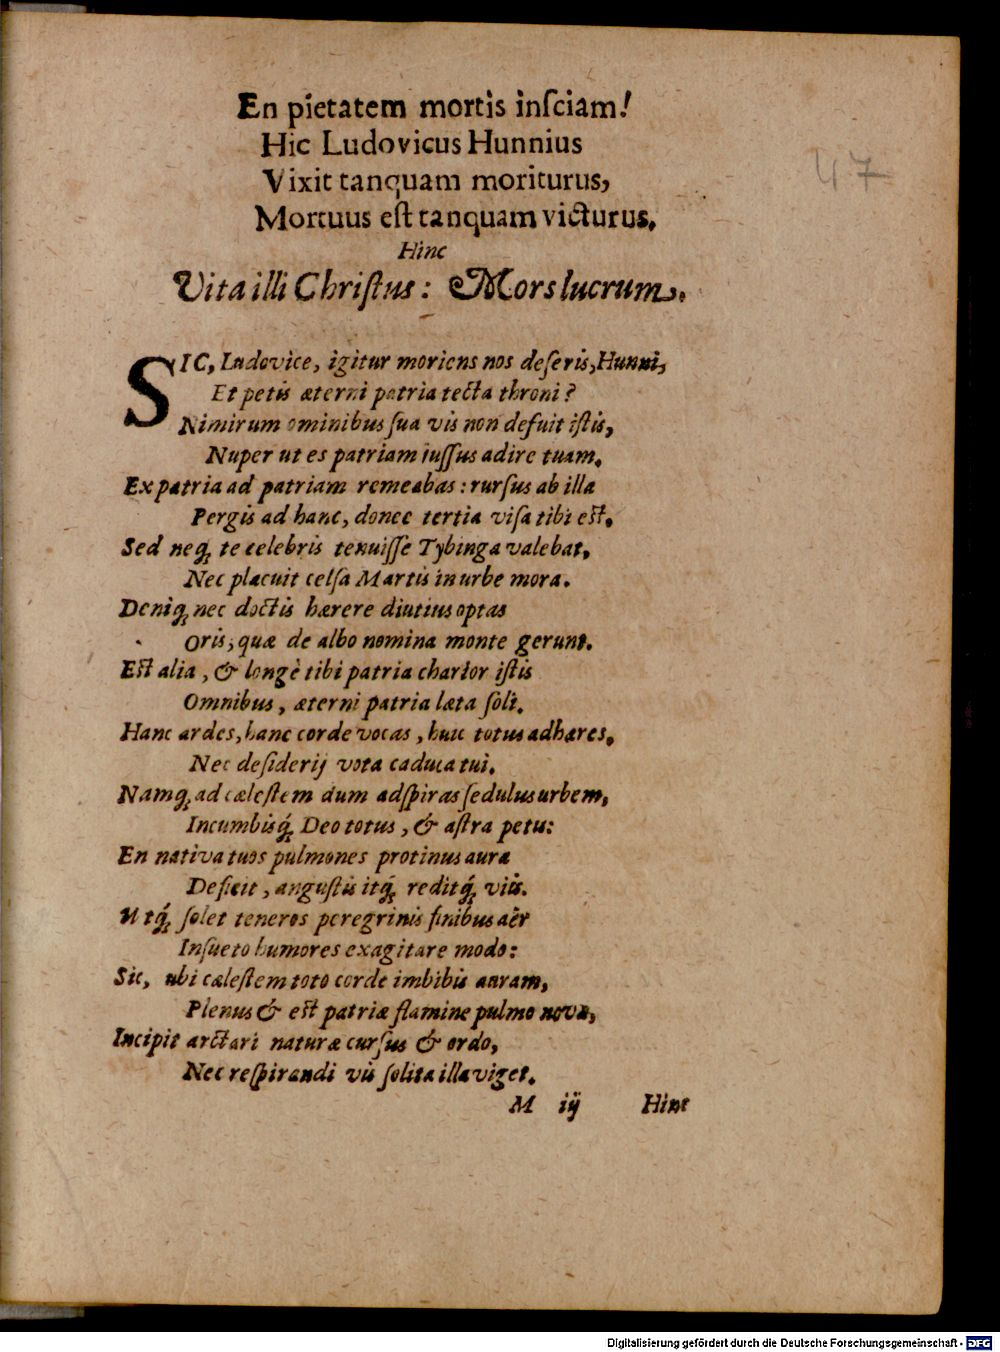 En pietatem mortis inſciam!
47
Hic Ludovicus Hunnius
Vixit tanquam moriturus,
Mortuus eſt tanquam victurus.
Hinc
Vita illi Chriſtus: Mors lucrum.
SIC, Ludovice, igitur moriens nos deſeris, Hunni,
Et petis æterni patria tecta throni?
Nimirum ominibus ſua vis non defuit iſtis,
Nuper ut es patriam iuſſus adire tuam.
Ex patria ad patriam remeabas: rurſus ab illa
Pergis ad hanc, donec tertia viſa tibi eſt.
Sed neq; te celebris tenuiſſe Tybinga valebat,
Nec placuit celſa Martis in urbe mora.
Deniq; nec doctis hærere diutius optas
Oris, quæ de albo nomina monte gerunt.
Eſt alia, & longè tibi patria charior iſtis
Omnibus, æterni patria læta ſoli.
Hanc ardes, hanc corde vocas, huic totus adhæres,
Nec deſiderij vota caduca tui.
Namq; ad cæleſtem dum adſpiras ſedulus urbem,
Incumbisq́; Deo totus, & aſtra petis:
En nativa tuos pulmones protinus aura
Deficit, anguſtis itq́; reditq́; viis.
Utq́; ſolet teneros peregrinis finibus aër
Inſueto humores exagitare modo:
Sic, ubi cæleſtem toto corde imbibis auram,
Plenus & eſt patriæ flamine pulmo novæ,
Incipit arctari naturæ curſus & ordo,
Nec reſpirandi vis ſolita illa viget.
M iij Hinc
Digitalisierung gefördert durch die Deutsche Forschungsgemeinschaft - DFG